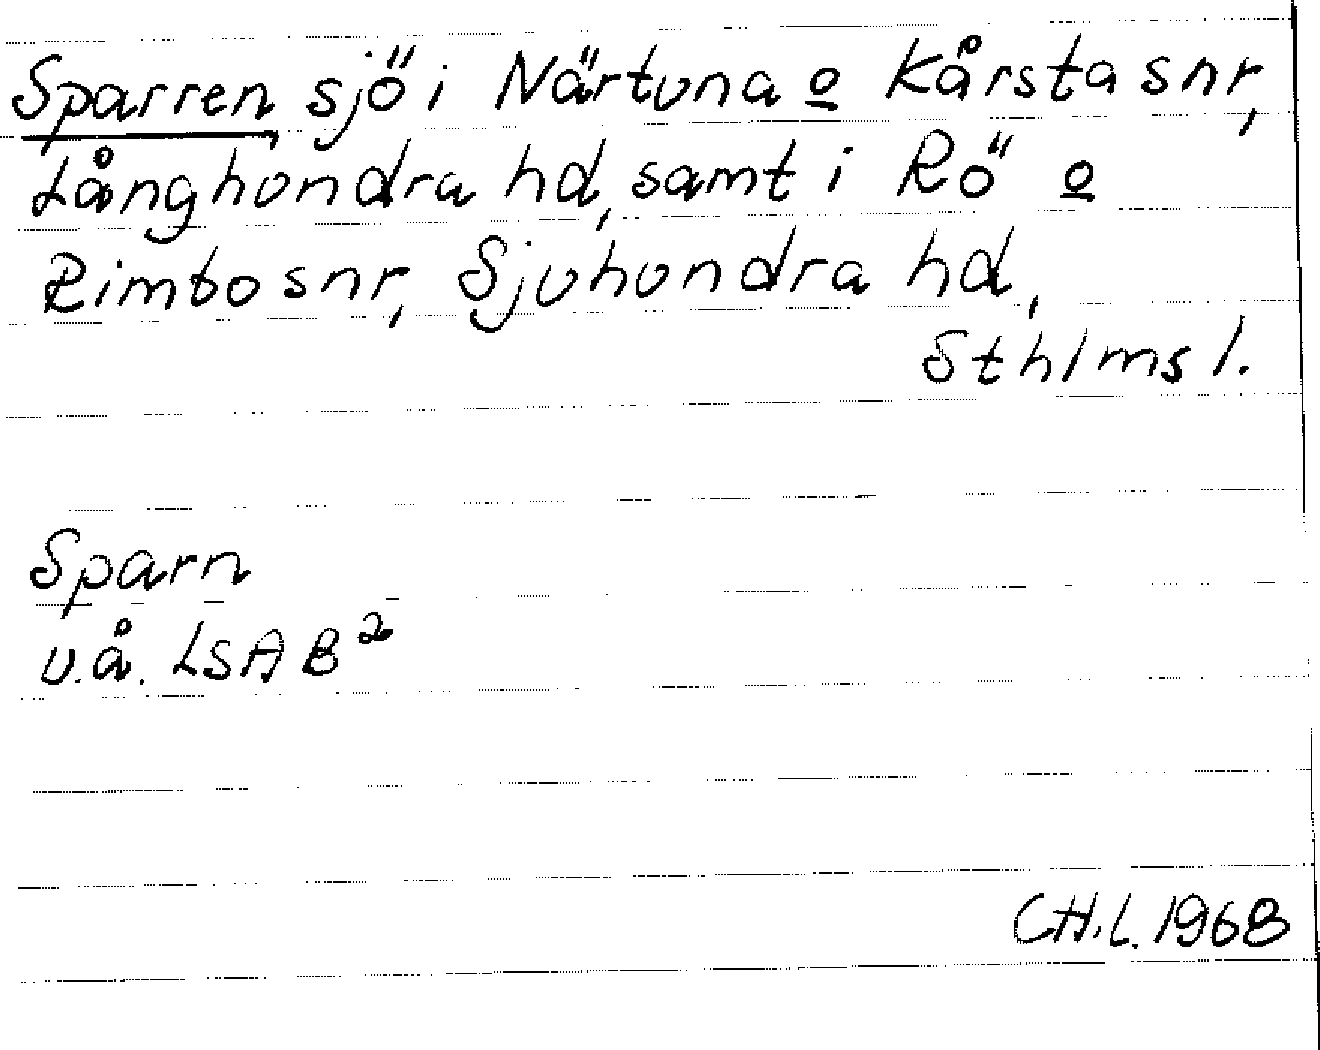 Sparren, sjö i Närtuna o Kårsta snr,
Långhundra hd, samt i Rö o
Rimbo snr, Sjuhundra hd,
Sthlms l.
Sparn
u.å. LSA B²
CH.L. 1968